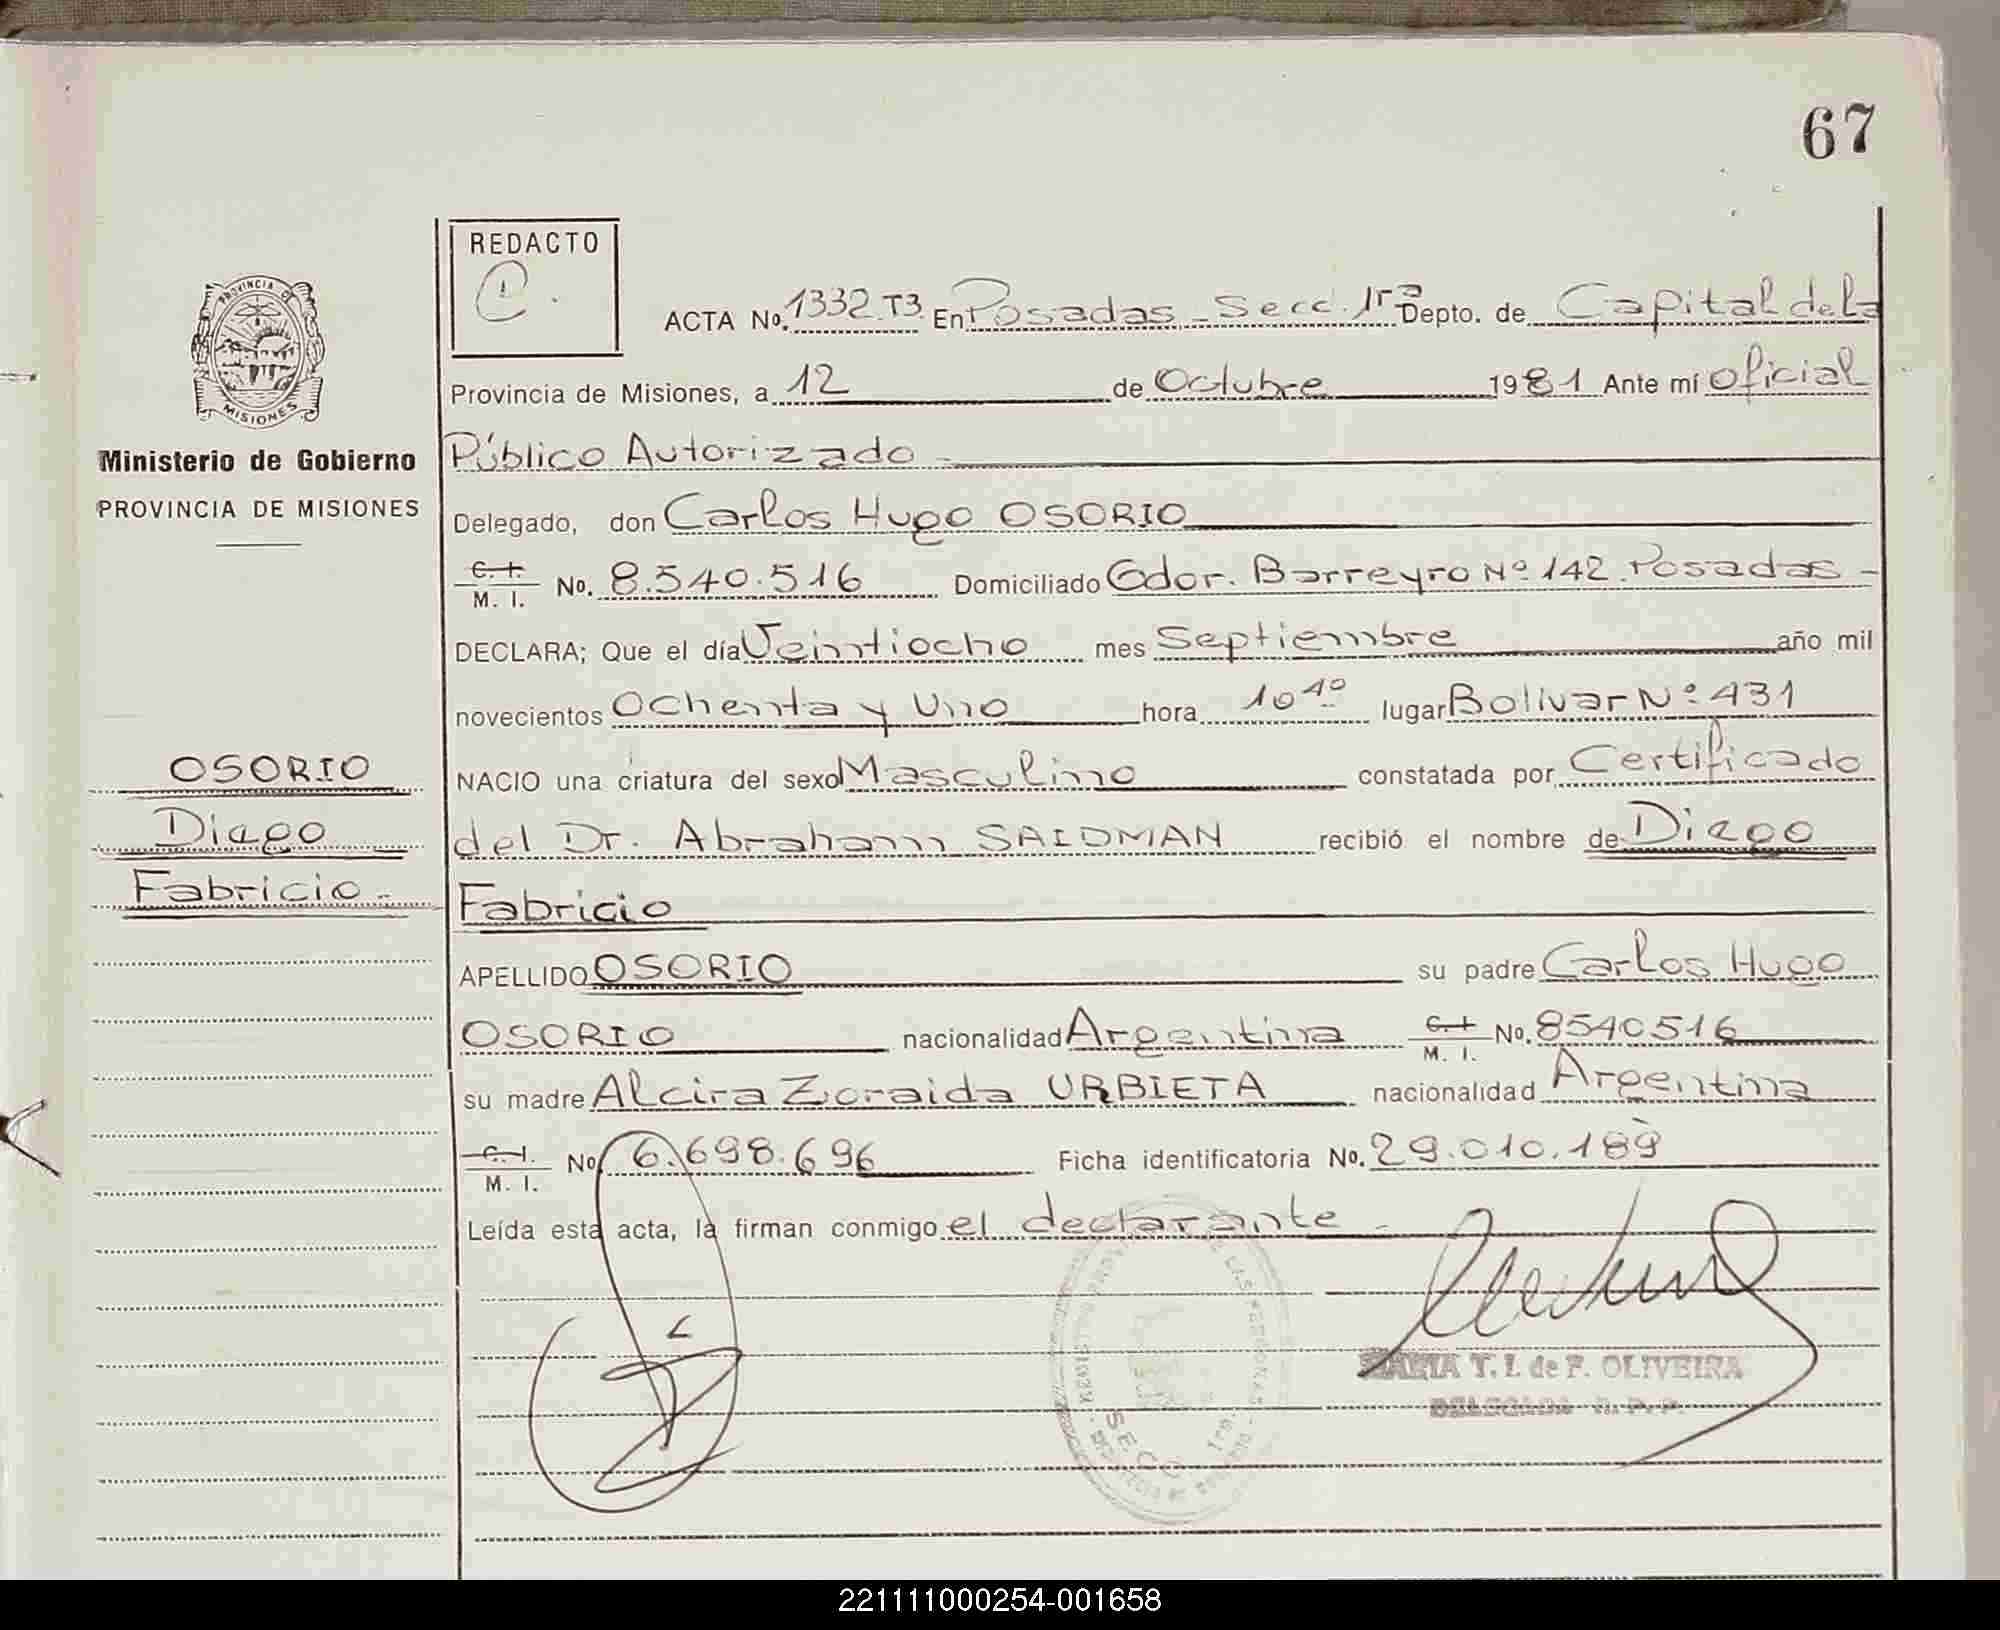 67
REDACTO
ACTA No. 1332.T3 En Posadas - Secc. 1ra Depto. de Capital de la
Provincia de Misiones, a 12 de Octubre 1981 Ante mí Oficial
Público Autorizado -
Delegado, don Carlos Hugo OSORIO
C. I. M. I. No. 8.540.516 Domiciliado Gdor. Barreyro Nº 142 Posadas -
DECLARA; Que el día Veintiocho mes Septiembre año mil
novecientos Ochenta y Uno hora 10 40 lugar Bolivar Nº 431
NACIO una criatura del sexo Masculino constatada por Certificado
del Dr. Abraham SAIDMAN recibió el nombre de Diego
Fabricio
APELLIDO OSORIO su padre Carlos Hugo
OSORIO nacionalidad Argentina C. I. M. I. No. 8540516
su madre Alcira Zoraida URBIETA nacionalidad Argentina
C. I. M. I. No 6.698.696 Ficha identificatoria No. 29.010.189
Leída esta acta, la firman conmigo el declarante -
PROVINCIA DE
MISIONES
Ministerio de Gobierno
PROVINCIA DE MISIONES
OSORIO
Diego
Fabricio -
MARIA T. I. de F. OLIVEIRA
DELEGADA R. P. P.
SECC 1ra.
221111000254-001658